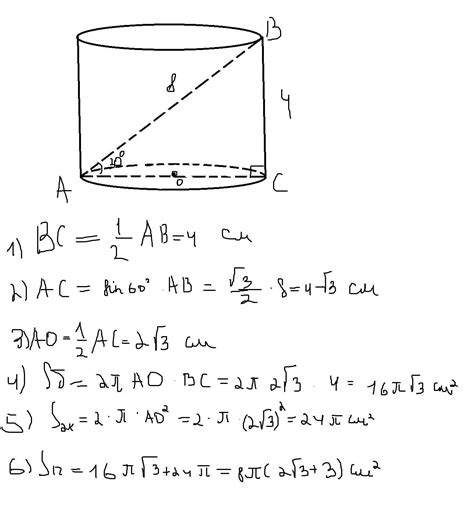 B
8
4
30°
A
O
C
1) BC = 1/2 AB = 4 см
2) AC = sin 60° · AB = √3/2 · 8 = 4√3 см
3) AO = 1/2 AC = 2√3 см
4) Sδ = 2π AO · BC = 2π 2√3 · 4 = 16π√3 см²
5) S2x = 2 · π · AO² = 2 · π (2√3)² = 24π см²
6) Sп = 16π√3 + 24π = 8π(2√3 + 3) см²